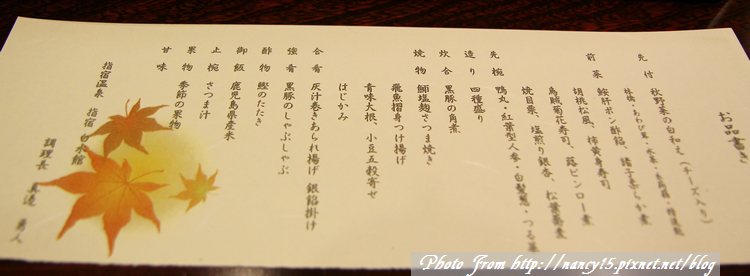 お品書き
先付 秋野菜の白和え(チーズ入り)
前菜 鮟肝ポン酢餡、諸子柔らか煮
胡桃松風、柿黄身寿司
烏賊菊花寿司、蕗ピンロー煮
焼目栗、塩煎り銀杏、松葉蕎麦
先椀 鴨丸・紅葉型人参・白髪葱・つる菜
造り 四種盛り
炊合 黒豚の角煮
焼物 鰤塩麹さつま焼き
飛魚摺身つけ揚げ
青味大根、小豆五穀寄せ
はじかみ
合肴 灰汁巻きあられ揚げ 銀餡掛け
強肴 黒豚のしゃぶしゃぶ
酢物 鰹のたたき
御飯 鹿児島県産米
止椀 さつま汁
果物 季節の果物
甘味
指宿温泉 指宿白水館
調理長 真流 勇人
Photo From http://nancy15.pixnet.net/blog